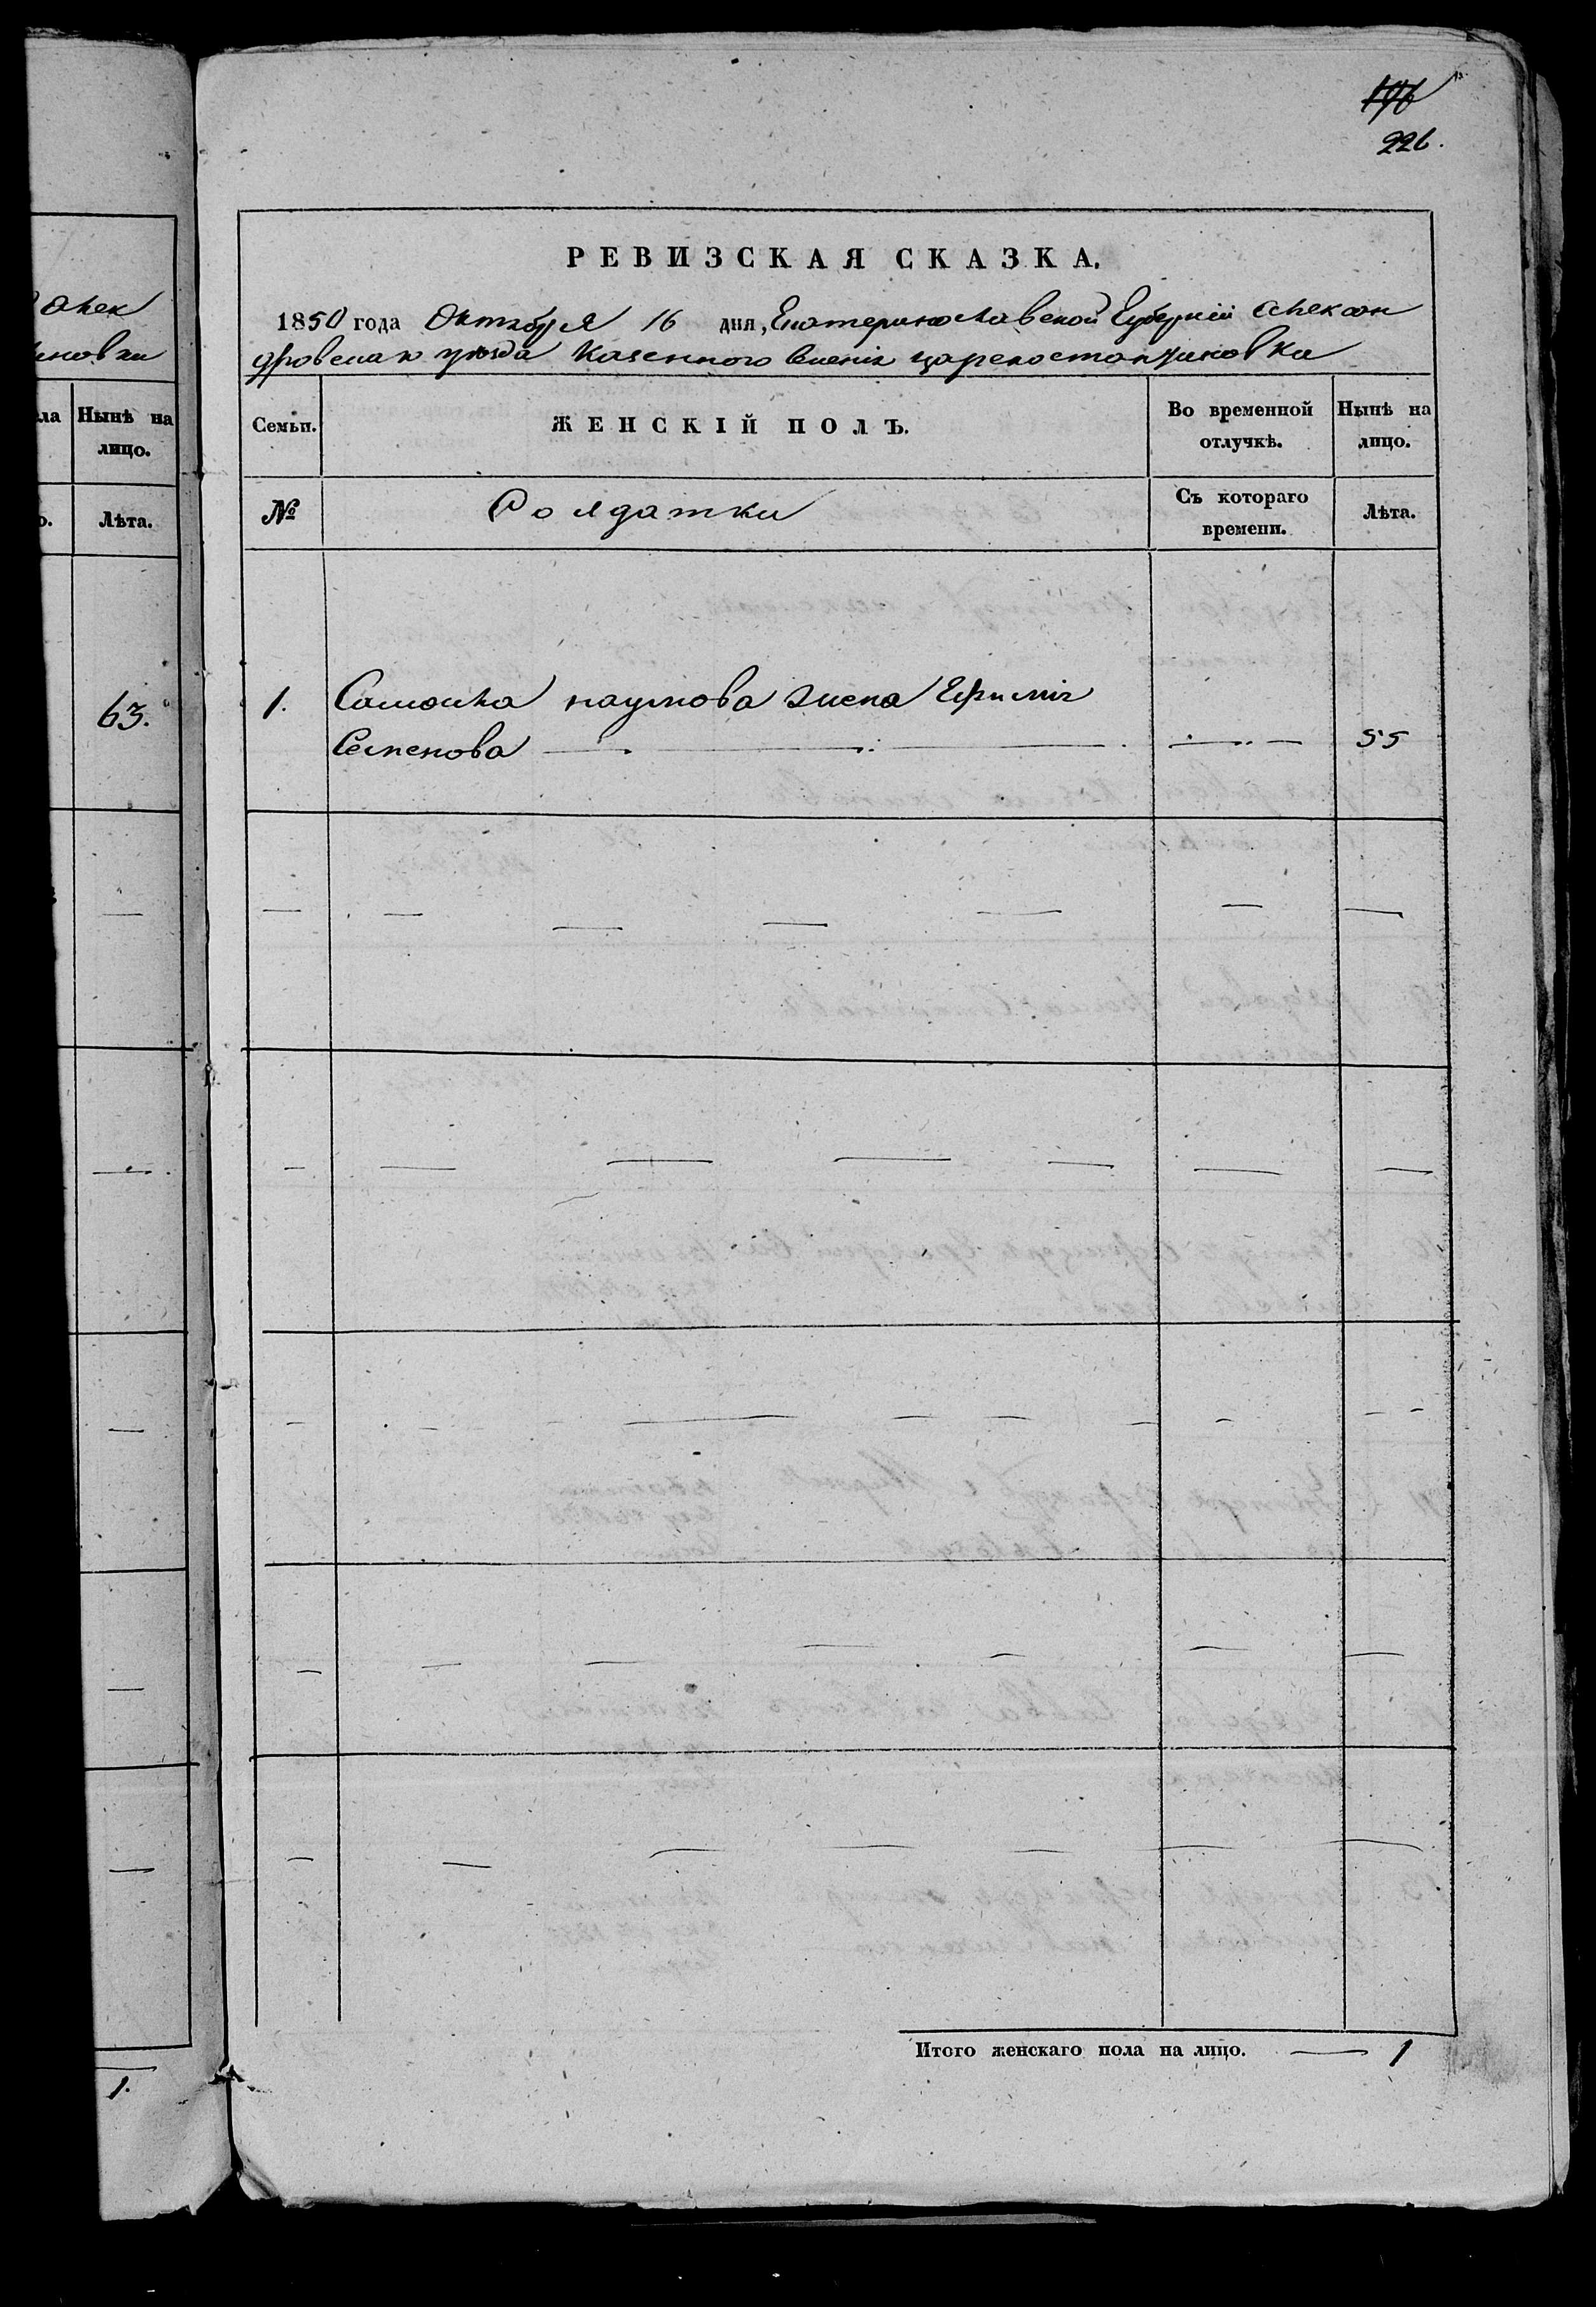 196
226.
РЕВИЗСКАЯ СКАЗКА.
1850 года Октября 16 дня, Екатеринославской Губернiи Алексан
дровскаго уѣзда Казенного сленiя Цареконстантиновки
Семьи.
ЖЕНСКІЙ ПОЛЪ.
Во временной отлучкѣ.
Нынѣ на лицо.
№
Солдатки
Съ котораго времени.
Лѣта.
1.
наумова жена Ефимiя
Семенова
55
Итого женскаго пола на лицо. 1
алек
иновки
ла
Нынѣ на
лицо.
Лѣта.
63.
1.